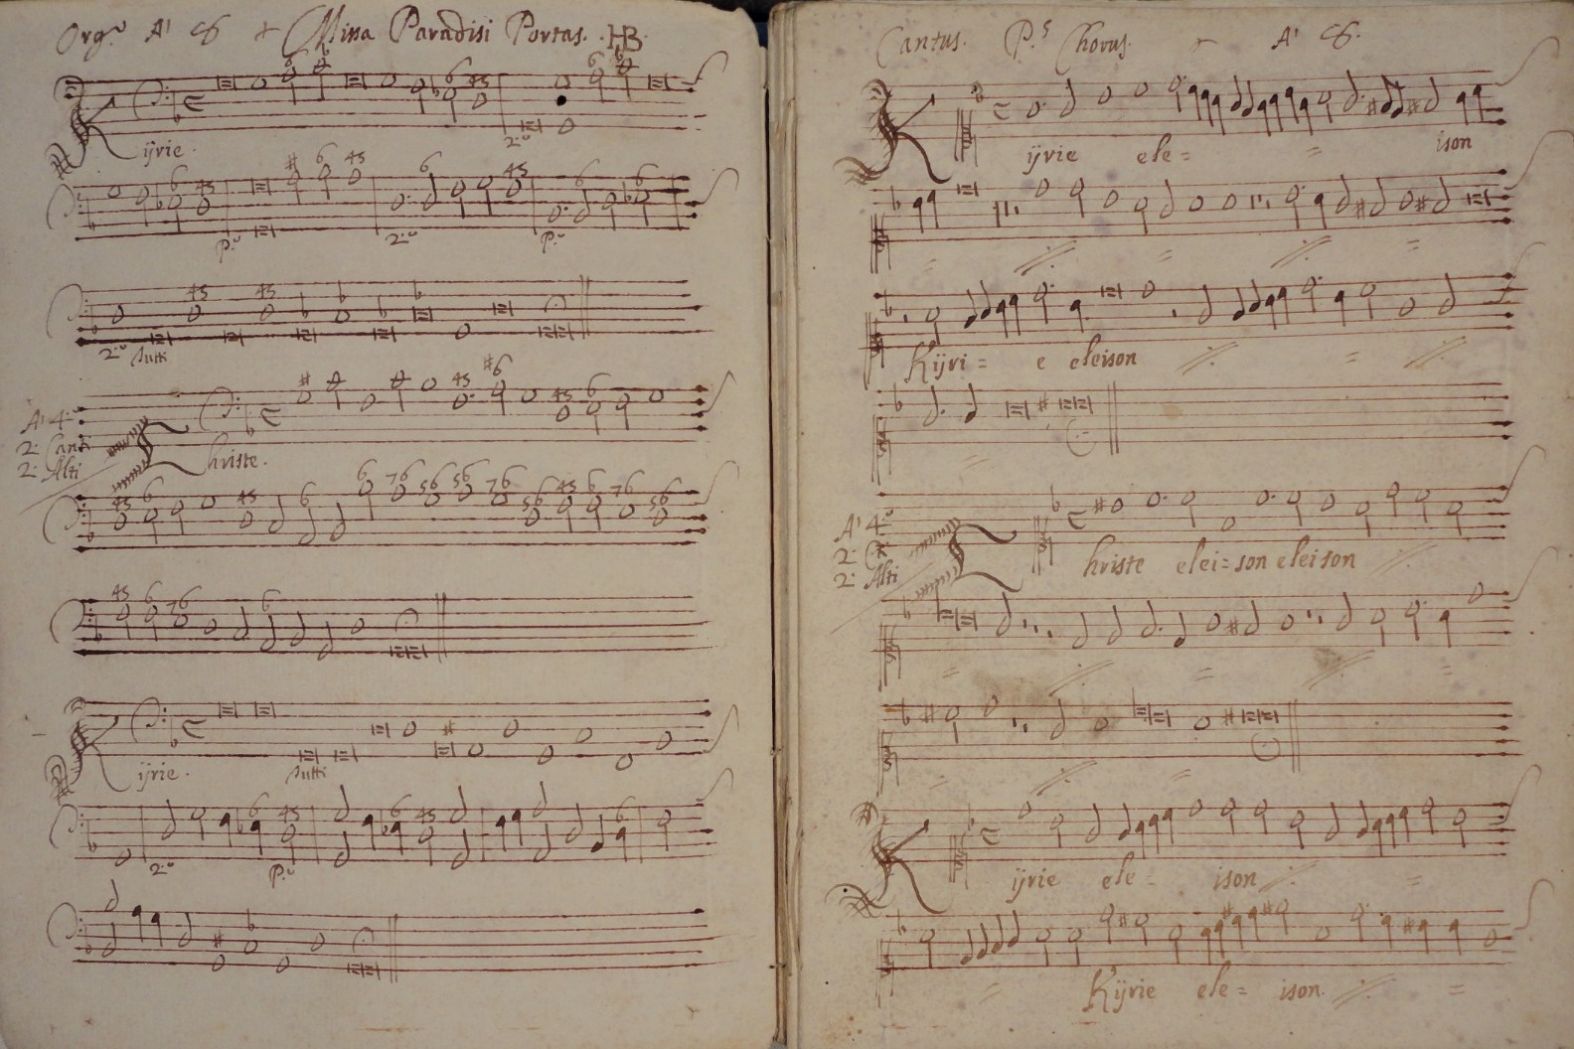 Org.o A' 8 Missa Paradisi Portas. HB.
Kijrie.
2.o
p.o 2.o p.o
2.o tutti
A' 4.
2. Canti
2. Alti
Christe.
Kijrie. tutti
2.o p.o
Cantus. P.s Chorus. A' 8.
Kijrie ele= = ison
Kijri= e eleison
A' 4.
2. C
2. Alti
Christe elei=son eleison
Kijrie ele- ison
Kijrie ele= ison.